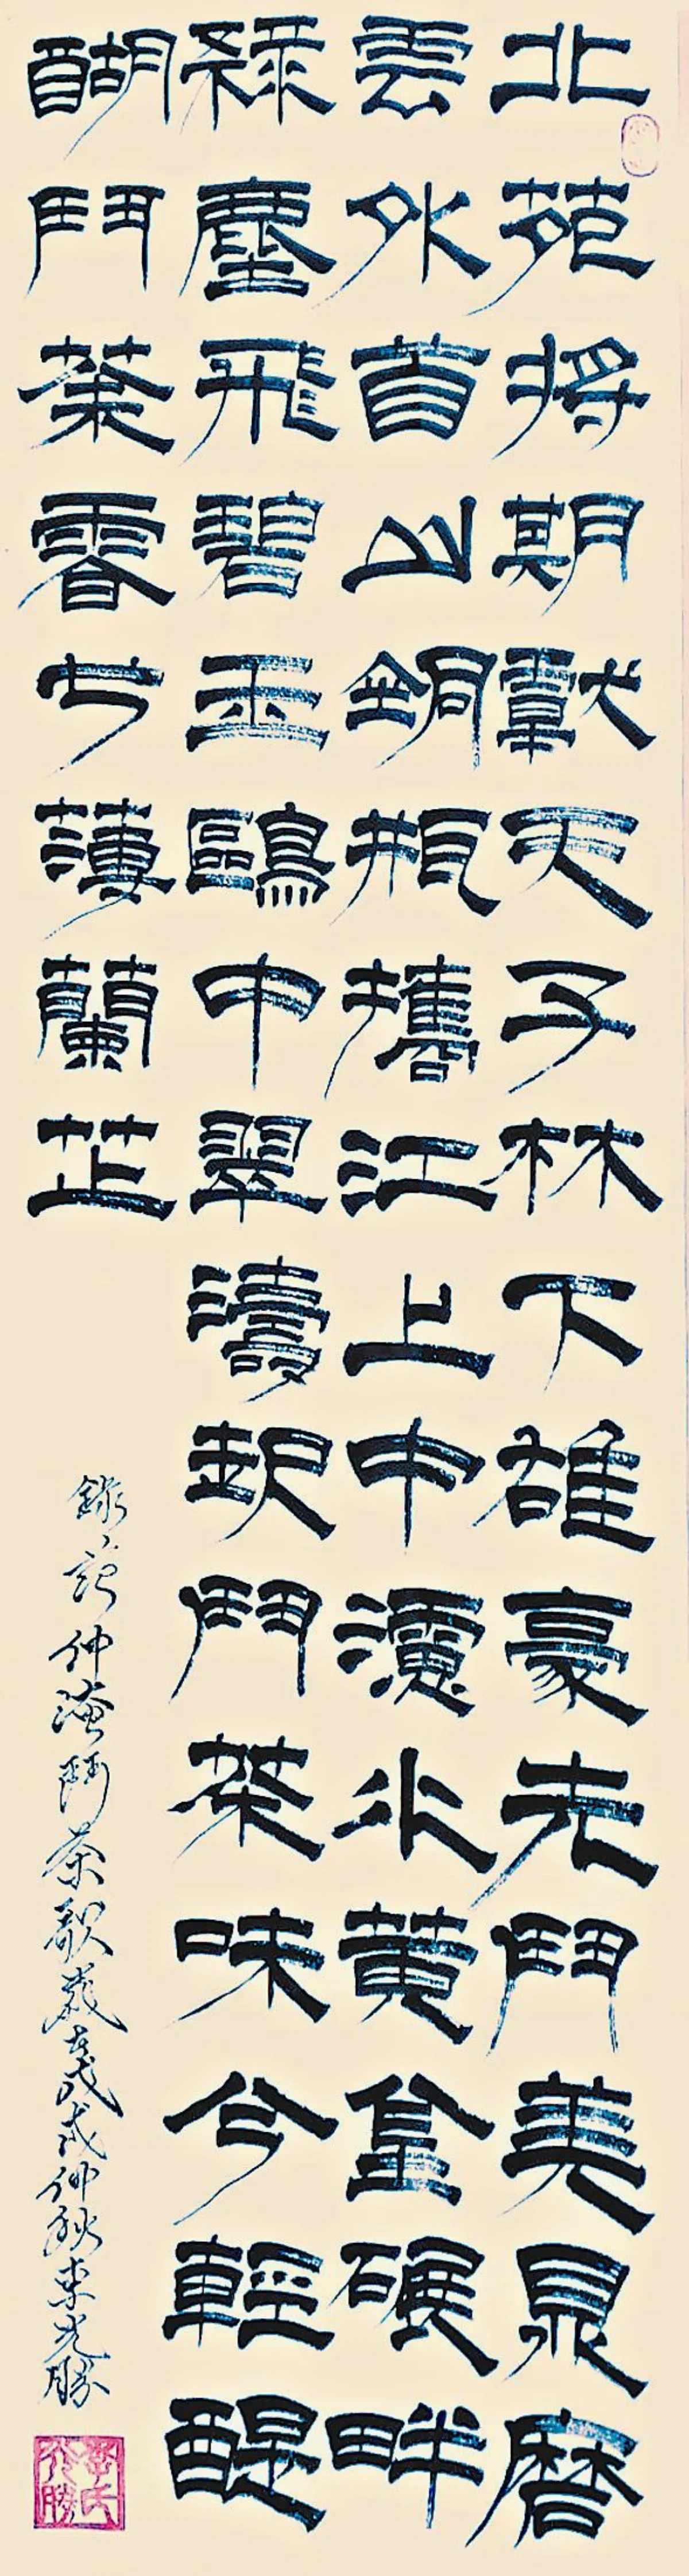 北苑将期獻天子林下雄豪先鬥美鼎磨
雲外首山銅瓶攜江上中水黄金碾畔
緑塵飛碧玉鷗中翠濤起鬥茶味兮輕醍
醐鬥茶香兮薄蘭芷
錄范仲淹鬥茶歌歲在戊戌仲秋李光勝
李氏光勝